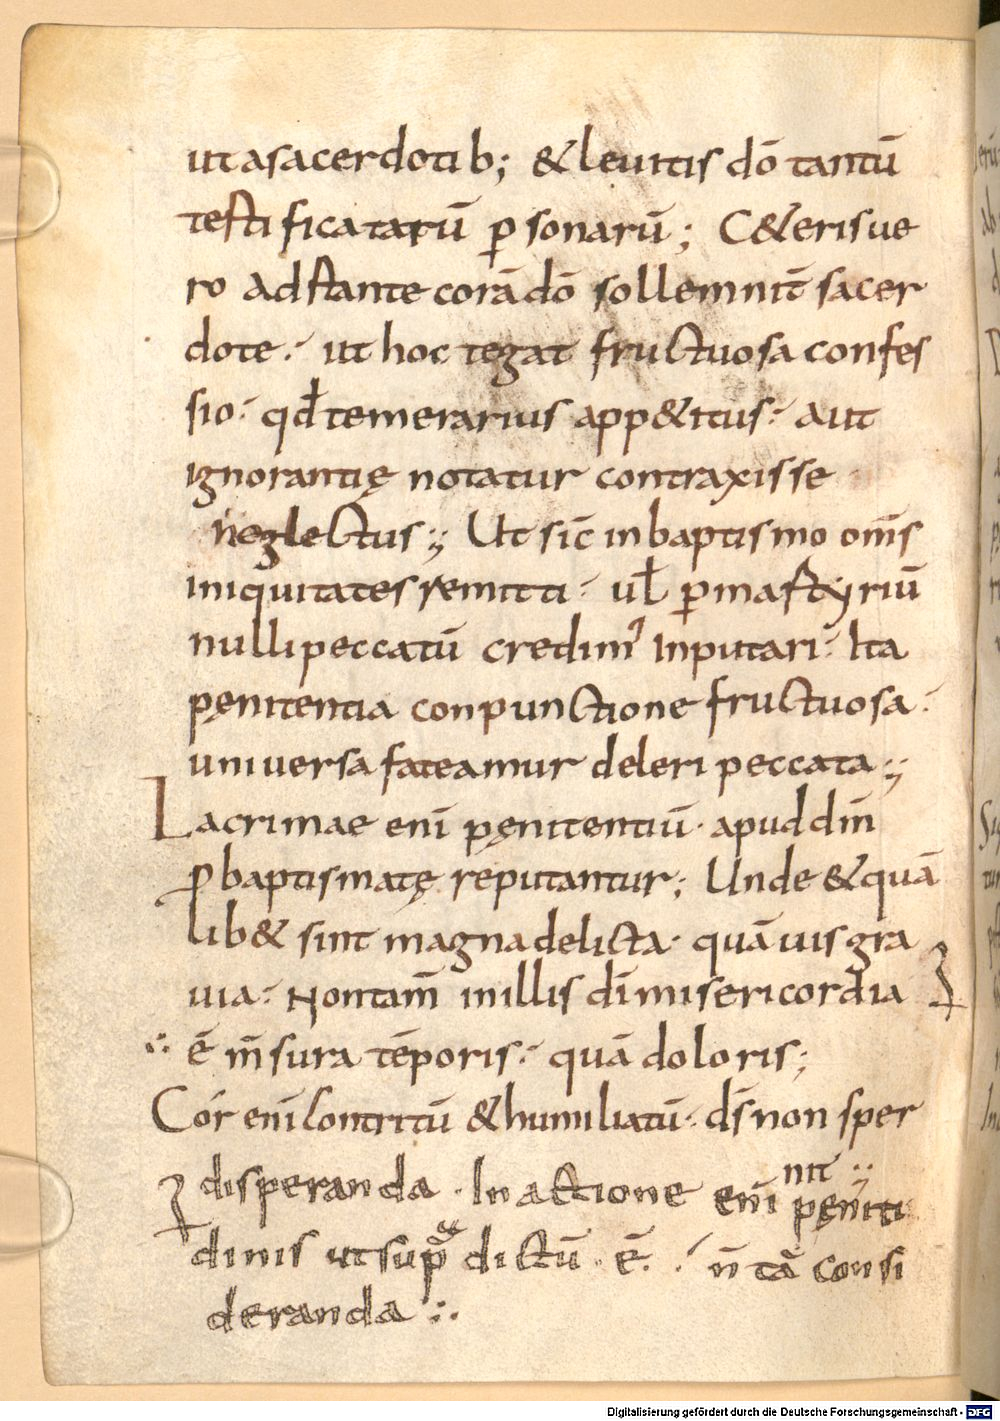 ut a sacerdotib; & leuitis dō tantū
testificatarū ꝑsonarū; C&eris ue
ro adstante corā dō sollemnit̄ sacer
dote. ut hoc tegat fructuosa confes
sio. qđ temerarius app&itus. aut
ignorantię notatur contraxisse
neglectus; Ut sic̄ in baptismo om̄s
iniquitates remitti. ul̄ ꝑ martyriū
nulli peccatū credim' inputari. Ita
pęnitentia conpunctione fructuosa.
uniuersa fateamur deleri peccata;
Lacrimae eni̅ pęnitentiū. apud dn̄
ꝓ baptismatę reputantur; Unde & quā
lib& sint magna delicta. quāuis gra
uia. Non tam̄ in illis di̅ misericordia
ē m̄sura tēporis. quā doloris;
Cor eni̅ contritū & humiliatū. ds̄ non sper
disperanda. In actione eni̅ pęniti
nit;
dinis ut supᷓ dictū. ē. n̄ tā consi
deranda
Digitalisierung gefördert durch die Deutsche Forschungsgemeinschaft - DFG